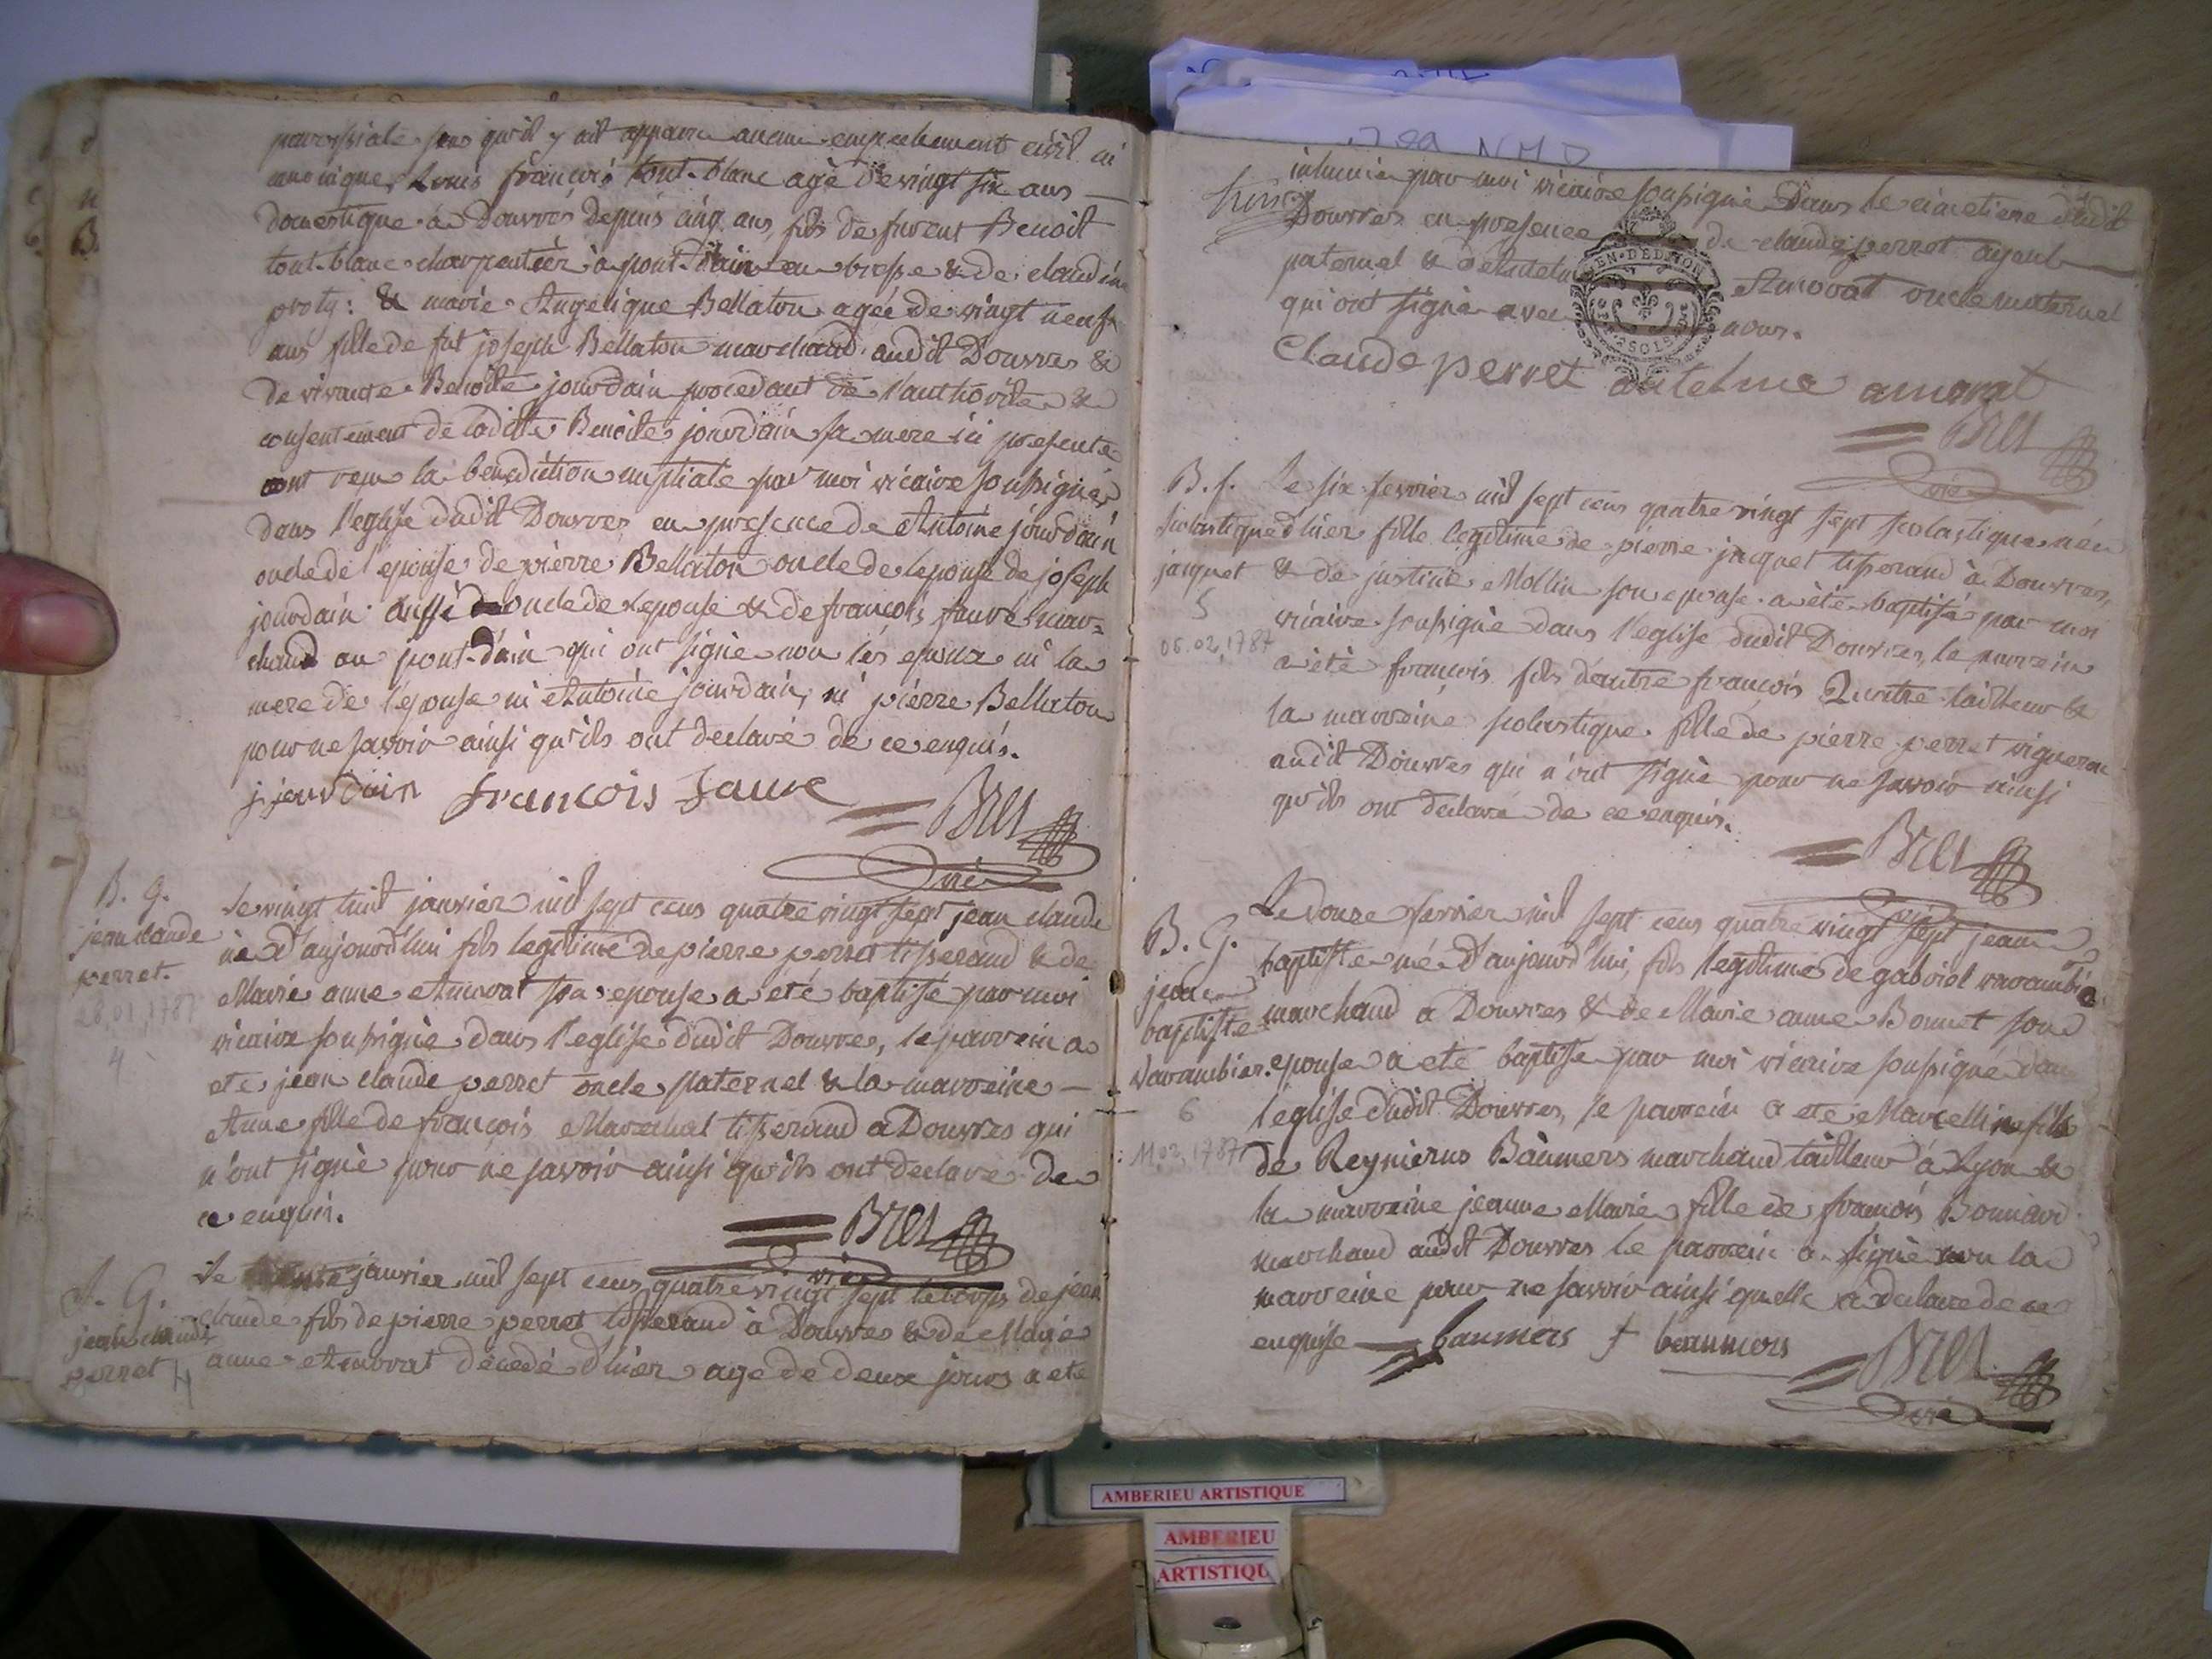 paroissiale sans qu'il y ait apparu aucun empechement civil ni
canonique, Louis françois tont-blanc agé de vingt six ans
domestique a Douvres depuis cinq ans, fils de furent Benoit
tont-blanc charpentier à pont-d'ain en bresse & de claudine
proty: & marie Angelique Bellaton agée de vingt neuf
ans fille de fut joseph Bellaton marchand audit Douvres &
de vivante Benoite jourdain procedant de l'authorité &
consentement de ladite Benoite jourdain sa mere ici presente
ont recu la benediction nuptiale par moi vicaire soussigné
dans l'eglise dudit Douvres en presence de Antoine jourdain
oncle de l'epouse de pierre Bellaton oncle de lepouse de joseph
jourdain aussi oncle de lepouse & de françois faure mar=
chand au pont-d'ain qui ont signé non les epoux ni la
mere de l'epouse ni Antoine jourdain, ni pierre Bellaton
pour ne savoir ainsi qu'ils ont declaré de ce enquis.
j jourdain francois faure Bret
vic
B. G.
jean claude
perret.
28.01.1787
4
Le vingt huit janvier mil sept cens quatre vingt sept jean claude
né d'aujourd'hui fils legitime de pierre perret tisserand & de
Marie anne Amorat son epouse a eté baptisé par moi
vicaire soussigné dans l'eglise dudit Douvres, le parrein a
eté jean claude perret oncle paternel & la marreine
Anne fille de françois Marechal tisserand a Douvres qui
n'ont signé pour ne savoir ainsi qu'ils ont declaré de
ce enquis.
Bret
vic
S. G.
jean claude
perret 4
Le janvier mil sept cens quatre vingt sept le corps de jean
claude fils de pierre perret tisserand à Douvres & de Marie
anne Amorat décedé d'hier agé de deux jours a eté
inhumé par moi vicaire soussigné Dans le cimetiere dudit
Douvres en presence de claude perret ayeul
paternel & d'Antelme Amorat oncle maternel
qui ont signé avec nous.
Claude perret antelme amorat
Bret
vic
B. f.
scolastique
jacquet
5
06.02.1787
Le six fevrier mil sept cens quatre vingt sept scolastique née
d'hier fille legitime de pierre jacquet tisserand à Douvres,
& de justine Mollin son epouse a été baptisée par moi
vicaire soussigné dans l'eglise dudit Douvres, le parrein
a eté françois fils d'autre françois Quntre tailleur &
la marreine scolastique fille de pierre perret vigneron
audit Douvres qui n'ont signé pour ne savoir ainsi
qu'ils ont declaré de ce enquis.
Bret
vic
B. G.
jean
baptiste
varambier.
6
11.02.1787
Le douze fevrier mil sept cens quatre vingt sept jean
baptiste né d'aujourd'hui, fils legitime de gabriel varambier
marchand a Douvres & de Marie anne Bonnet son
epouse a eté baptisé par moi vicaire soussigné dans
l'eglise dudit Douvres, le parrein a eté Marcellin fils
de Reynierus Baumers marchand tailleur à Lyon &
la marreine jeanne Marie fille de françois Bonnard
marchand audit Douvres le parrein a signé non la
marreine pour ne savoir ainsi quelle a declaré de ce
enquise baumers † baumers
Bret
vic
AMBERIEU ARTISTIQUE
AMBERIEU
ARTISTIQU